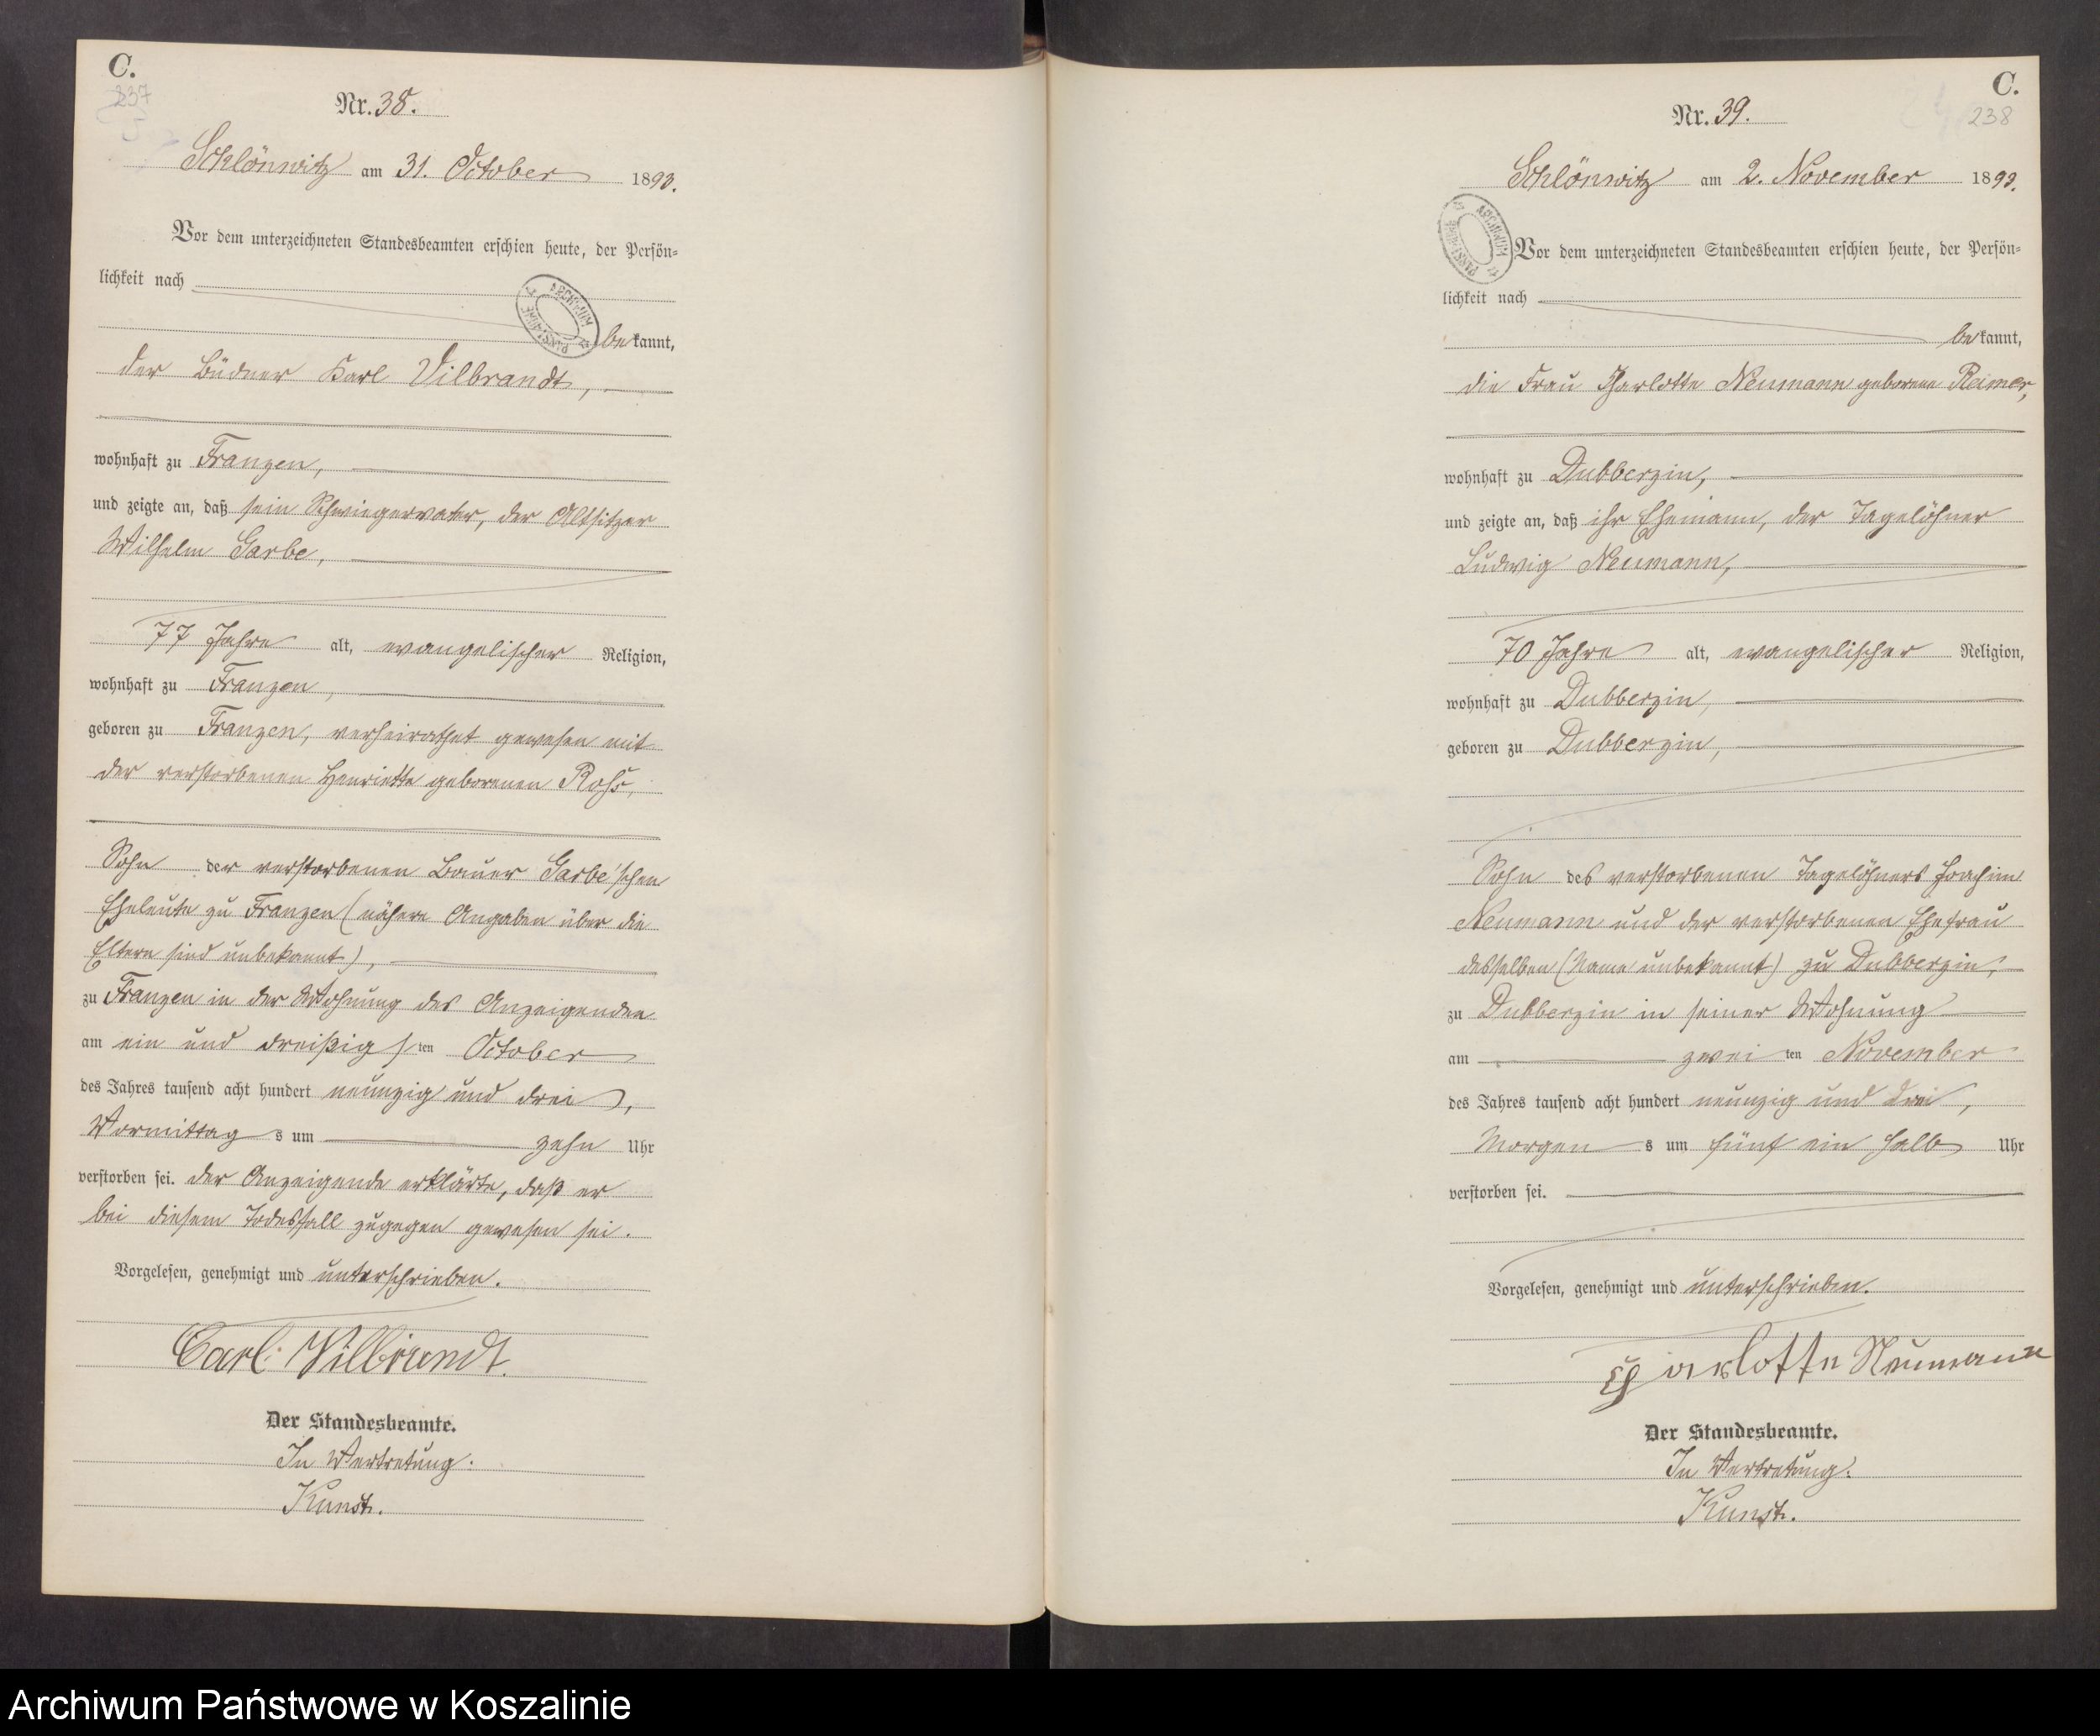 C.
237
Nr. 38.
Schlönwitz am 31. October 1893.
Vor dem unterzeichneten Standesbeamten erschien heute, der Persön-
lichkeit nach
bekannt,
der Büdner Karl Vilbrandt,
wohnhaft zu Franzen,
und zeigte an, daß sein Schwiegervater, der Altsitzer
Wilhelm Garbe,
77 Jahre alt, evangelischer Religion,
wohnhaft zu Franzen,
geboren zu Franzen, verheirathet gewesen mit
der verstorbenen Henriette geborenen Roß,
Sohn der verstorbenen Bauer Garbe'schen
Eheleute zu Franzen (nähere Angaben über die
Eltern sind unbekannt),
zu Franzen in der Wohnung des Anzeigenden
am ein und dreißigsten October
des Jahres tausend acht hundert neunzig und drei,
Vormittags um zehn Uhr
verstorben sei. der Anzeigende erklärte, daß er
bei diesem Todesfall zugegen gewesen sei.
Vorgelesen, genehmigt und unterschrieben.
Carl Vilbrandt.
Der Standesbeamte.
In Vertretung:
Kunst.
C.
238
Nr. 39.
Schlönwitz am 2. November 1893.
Vor dem unterzeichneten Standesbeamten erschien heute, der Persön-
lichkeit nach
bekannt,
die Frau Charlotte Neumann geborene Reimer,
wohnhaft zu Dubberzin,
und zeigte an, daß ihr Ehemann, der Tagelöhner
Ludwig Neumann,
70 Jahre alt, evangelischer Religion,
wohnhaft zu Dubberzin,
geboren zu Dubberzin,
Sohn des verstorbenen Tagelöhners Joachim
Neumann und der verstorbenen Ehefrau
desselben (Name unbekannt) zu Dubberzin,
zu Dubberzin in seiner Wohnung
am zweiten November
des Jahres tausend acht hundert neunzig und drei,
Morgens um fünf ein halb Uhr
verstorben sei.
Vorgelesen, genehmigt und unterschrieben.
Charlotte Neumann
Der Standesbeamte.
In Vertretung:
Kunst.
Archiwum Państwowe w Koszalinie